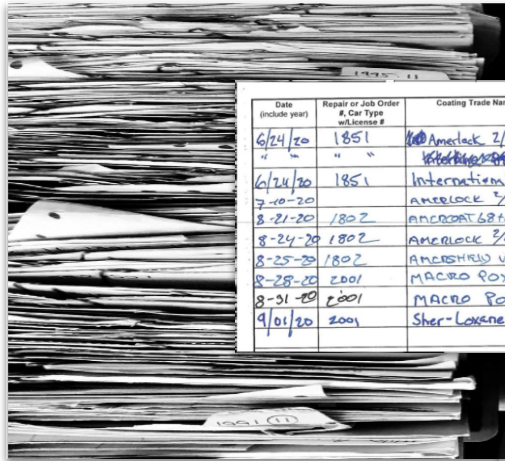 1995 11
Date (include year) Repair or Job Order #, Car Type w/License # Coating Trade Nam
6/24/20 1851 Amerlock 2/
" " " "
6/24/20 1851 Internation
7-10-20 AMERLOCK 2/
8-21-20 1802 AMERCOAT 68H
8-24-20 1802 AMERLOCK 2/
8-25-20 1802 AMERSHIELD V
8-28-20 2001 MACRO POX
8-31-20 2001 MACRO PO
9/01/20 2001 Sher-Loxane
1991 (11)